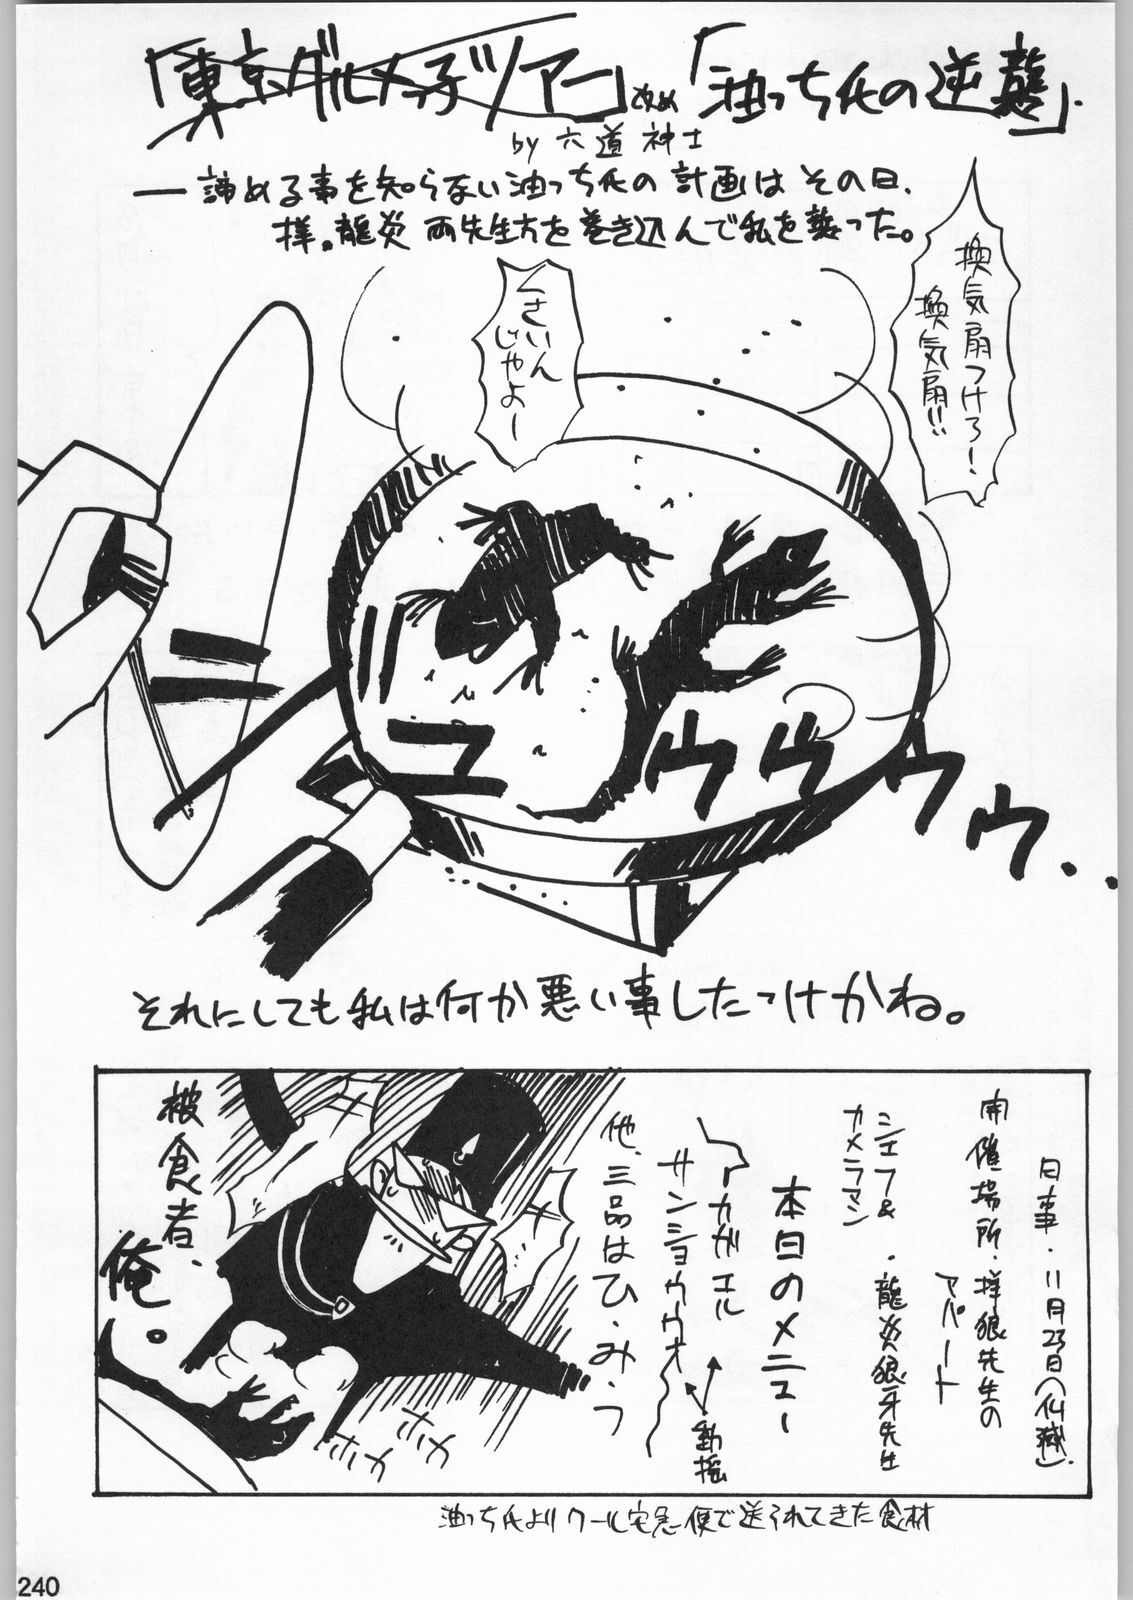 「東京グルメっ子ツアー」改め「油っち氏の逆襲」.
by 六道神士
― 諦める事を知らない油っち氏の計画はその日、
様。龍炎 両先生方を巻き込んで私を襲った。
換気扇つけろ!
換気扇!!
くさいん
じゃよー
ニュウウウウ..
それにしても私は何か悪い事したっけかね。
日事・11月23日(仏滅).
開催場所・様狼先生の
アパート
シェフ&
カメラマン
・龍炎狼牙先生
本日のメニュー
アカガエル
サンショウウオ
動揺
他、三品はひ・み・つ
被食者、
俺。
ボソッ
ボソッ
油っち氏よりクール宅急便で送られてきた食材
240